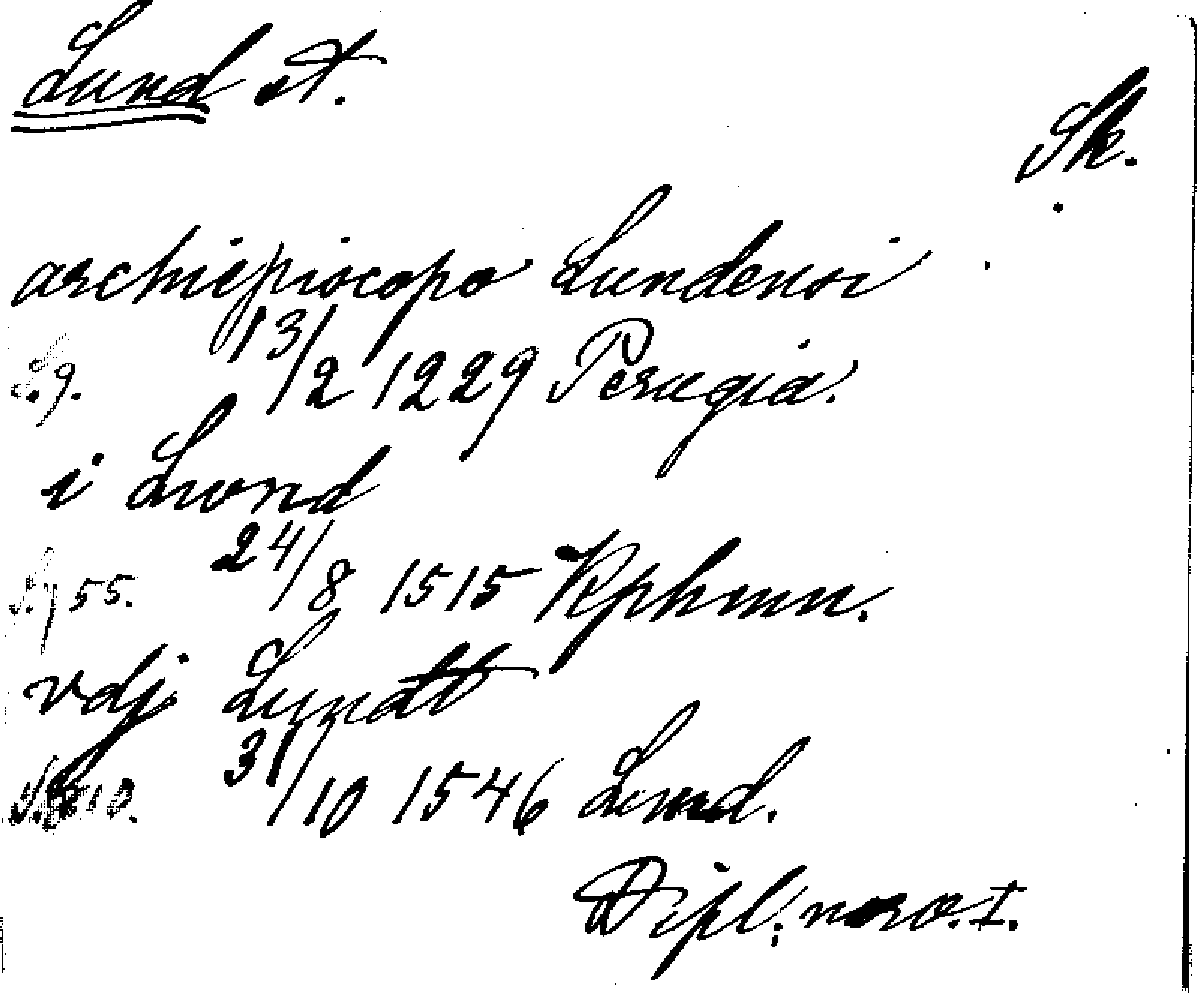 Lund st.
Sk.
archiepiscopo Lundensi
S.9. 13/2 1229 Perugia.
i Lwnd
55. 24/8 1515 Kphmn.
vdj Lundt
31/10 1546 Lund.
Dipl. norv. I.